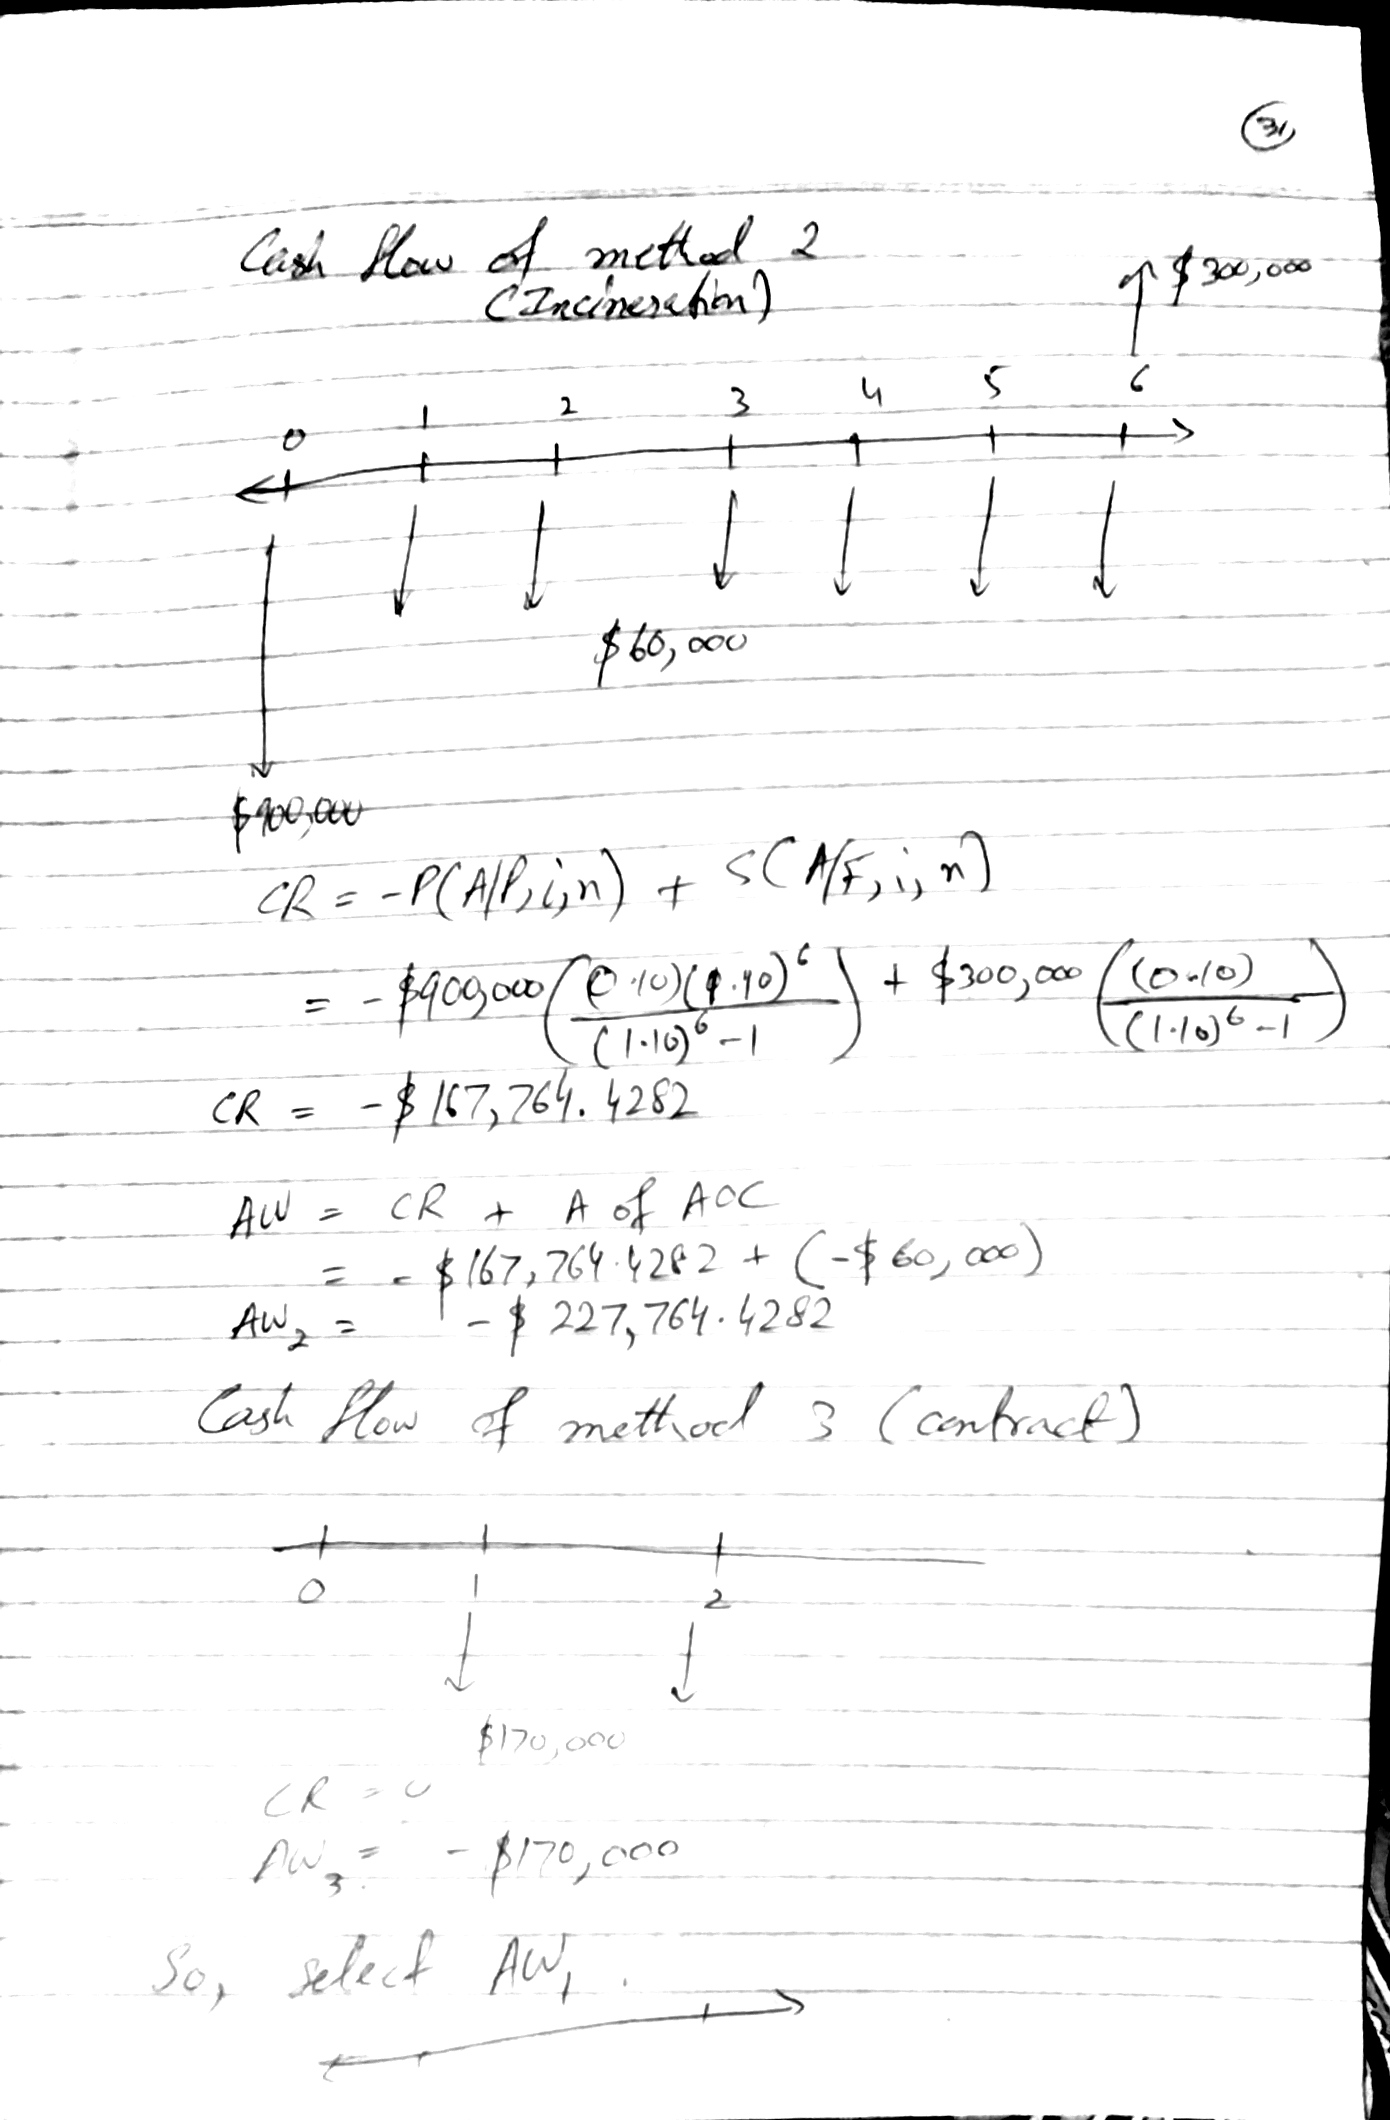 31
Cash flow of method 2
(Incineration)
$300,000
0 1 2 3 4 5 6
$60,000
$900,000
CR = -P(A/P,i,n) + S(A/F,i,n)
= -$900,000((0.10)(1.10)^6/(1.10)^6-1) + $300,000((0.10)/(1.10)^6-1)
CR = -$167,764.4282
AW = CR + A of AOC
= -$167,764.4282 + (-$60,000)
AW₂ = -$227,764.4282
Cash flow of method 3 (contract)
0 1 2
$170,000
CR = 0
AW₃ = -$170,000
So, select AW₁.